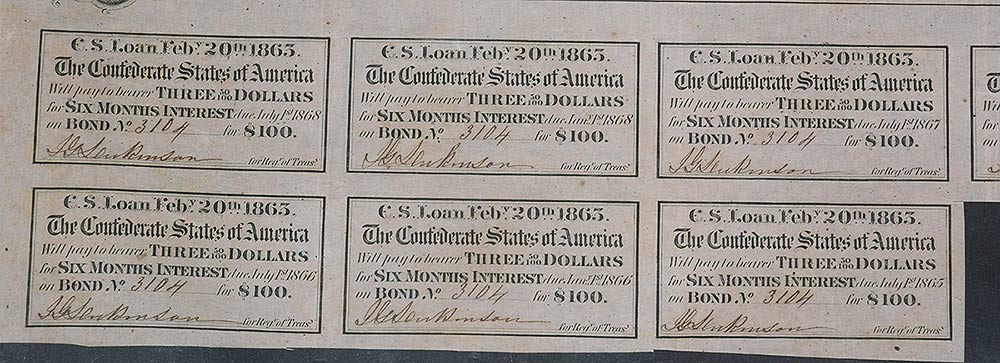 C.S. Loan Feby. 20th 1863.
The Confederate States of America
Will pay to bearer THREE 50/100 DOLLARS
for SIX MONTHS INTEREST due July 1st 1868
on BOND, No. 3104 for $100.
for Regr. of Treasy.
C.S. Loan Feby. 20th 1863.
The Confederate States of America
Will pay to bearer THREE 50/100 DOLLARS
for SIX MONTHS INTEREST due Jany. 1st 1868
on BOND, No. 3104 for $100.
for Regr. of Treasy.
C.S. Loan Feby. 20th 1863.
The Confederate States of America
Will pay to bearer THREE 50/100 DOLLARS
for SIX MONTHS INTEREST due July 1st 1867
on BOND, No. 3104 for $100.
for Regr. of Treasy.
C.S. Loan Feby. 20th 1863.
The Confederate States of America
Will pay to bearer THREE 50/100 DOLLARS
for SIX MONTHS INTEREST due July 1st 1866
on BOND, No. 3104 for $100.
for Regr. of Treasy.
C.S. Loan Feby. 20th 1863.
The Confederate States of America
Will pay to bearer THREE 50/100 DOLLARS
for SIX MONTHS INTEREST due Jany. 1st 1866
on BOND, No. 3104 for $100.
for Regr. of Treasy.
C.S. Loan Feby. 20th 1863.
The Confederate States of America
Will pay to bearer THREE 50/100 DOLLARS
for SIX MONTHS INTEREST due July 1st 1865
on BOND, No. 3104 for $100.
for Regr. of Treasy.